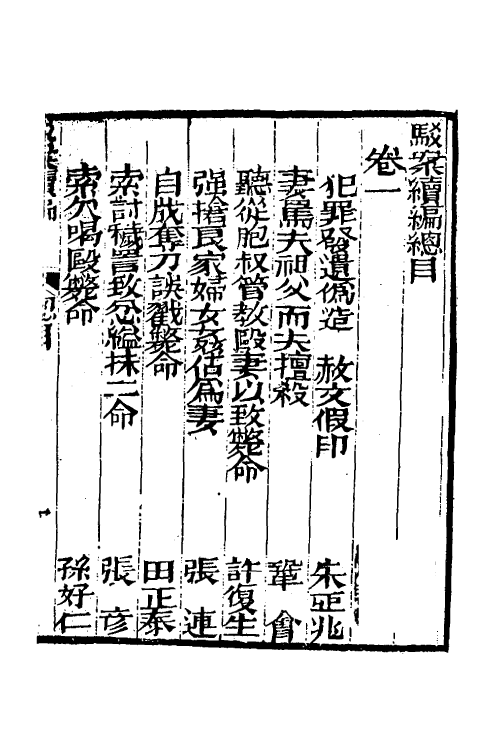 駁案續編總目
卷一
犯罪發遣僞造 赦文假印 朱亞兆
妻罵夫祖父而夫擅殺 鞏會
聽從胞叔管教毆妻以致斃命 許復生
强搶良家婦女姦佔爲妻 張連
自戕奪刀誤戳斃命 田正泰
索討穢詈致忿縊抹二命 張彦
索欠喝毆斃命 孫好仁